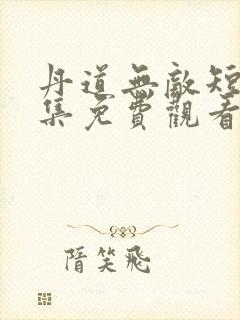 丹道無敵短
集免費觀看
隋笑飛